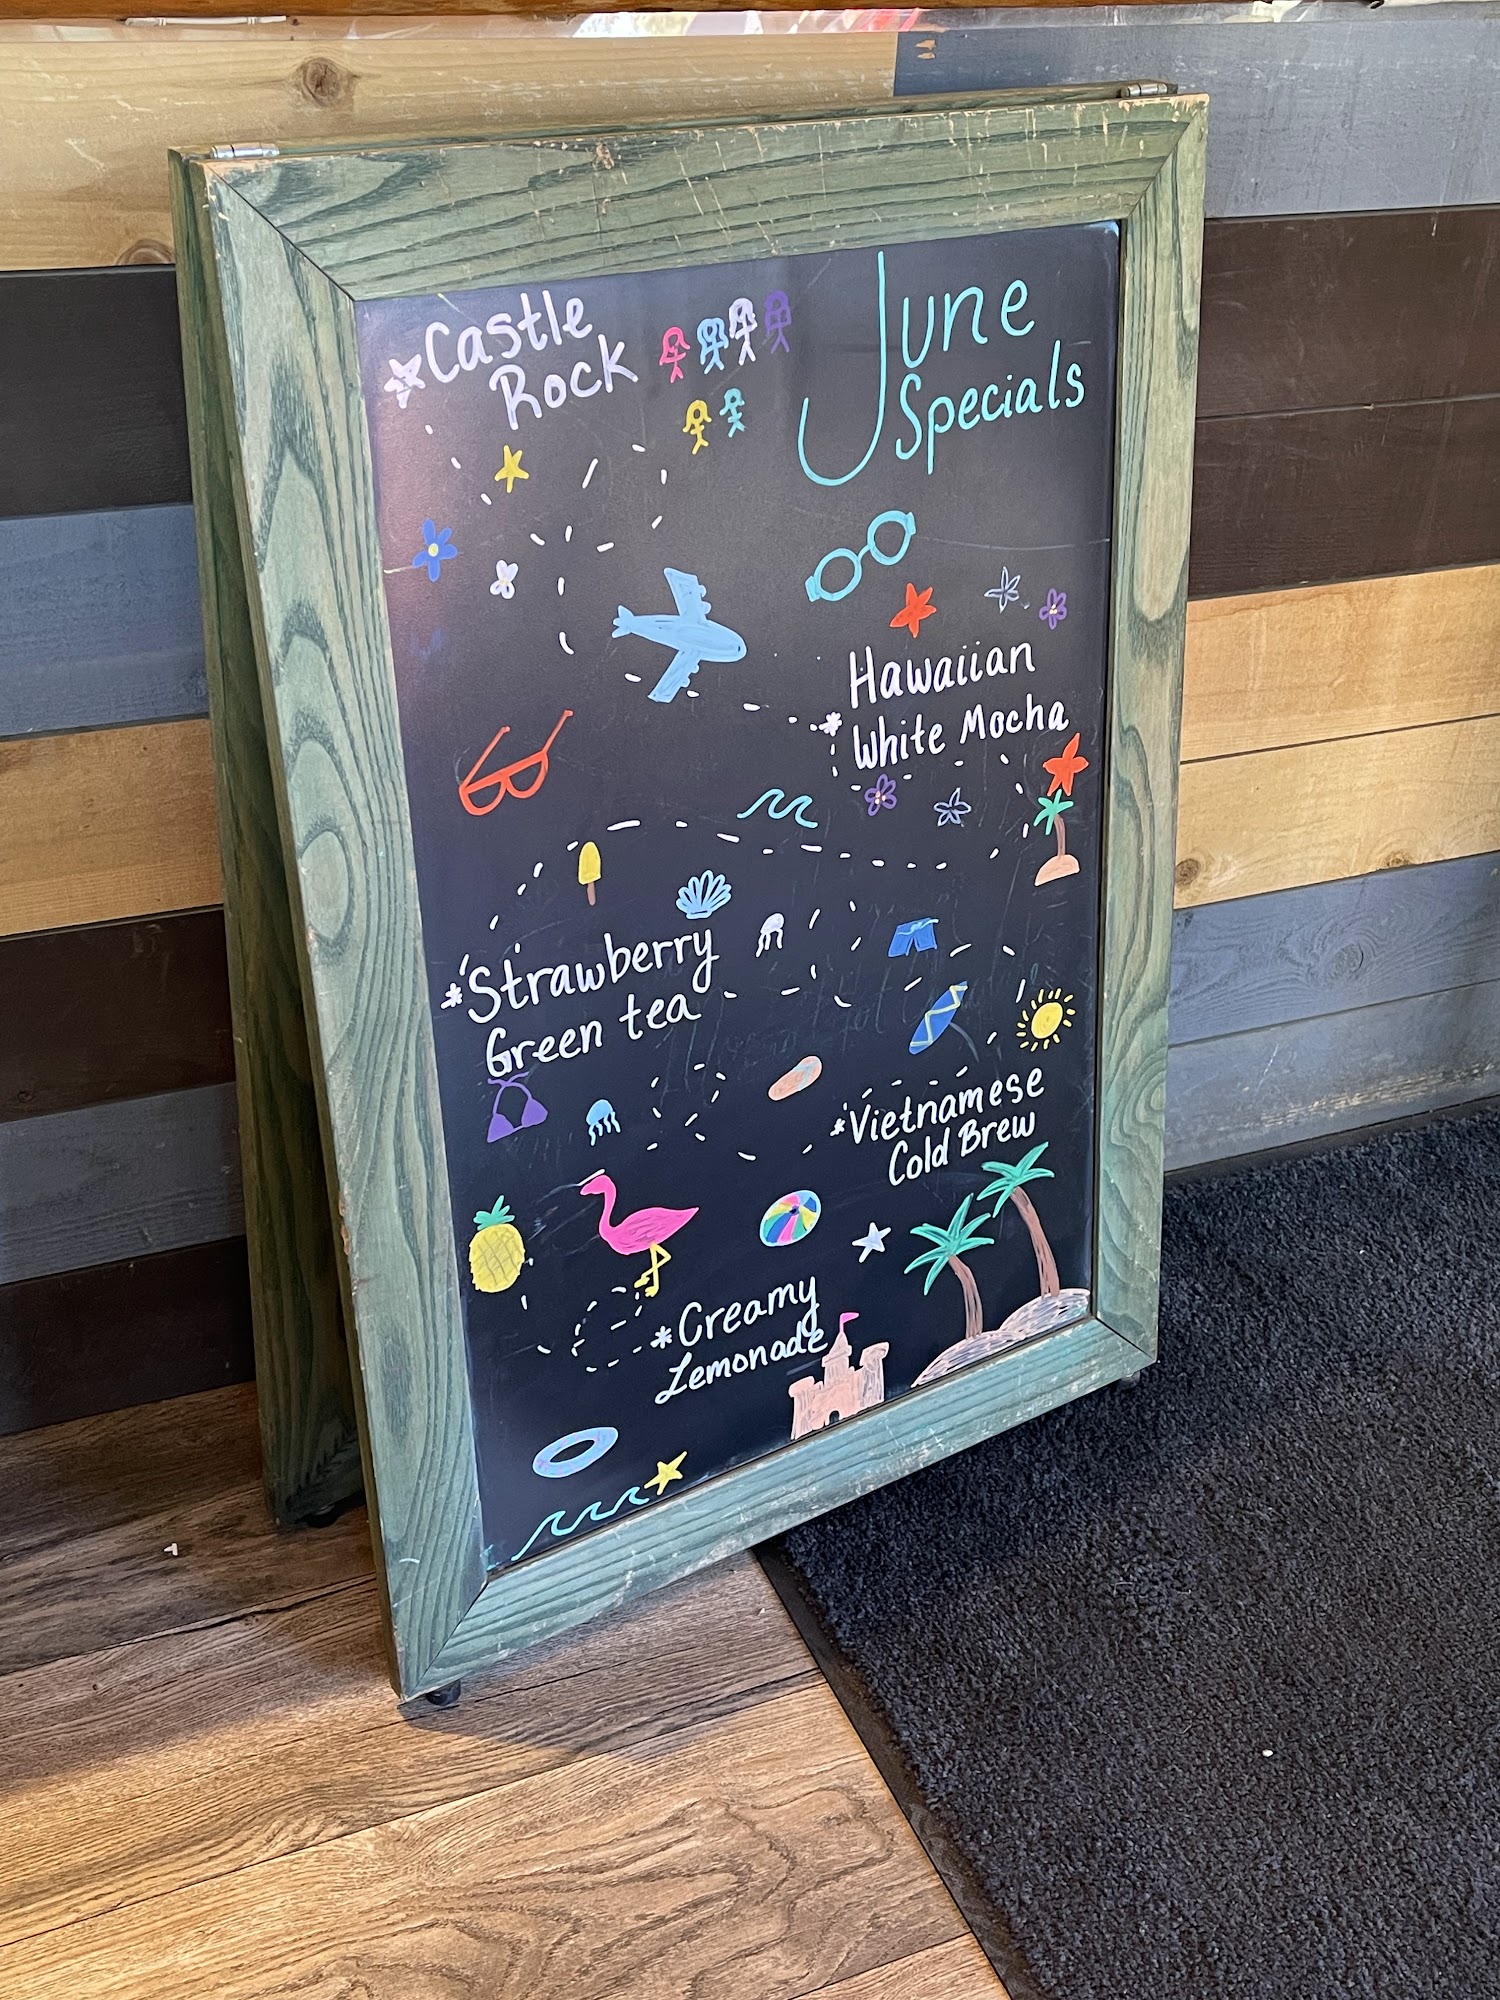 June
Specials
*Castle
Rock
Hawaiian
*White Mocha
*Strawberry
Green tea
*Vietnamese
Cold Brew
*Creamy
Lemonade